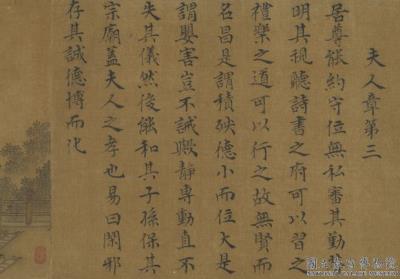 夫人章第三
居尊能約守位無私審其勤勞
明其視聽詩書之府可以習之
禮樂之道可以行之故無賢而
名昌是謂積殃德小而位大是
謂嬰害豈不誡歟靜專動直不
失其儀然後能和其子孫保其
宗廟蓋夫人之孝也易曰閑邪
存其誠德博而化
國立故宮博物院